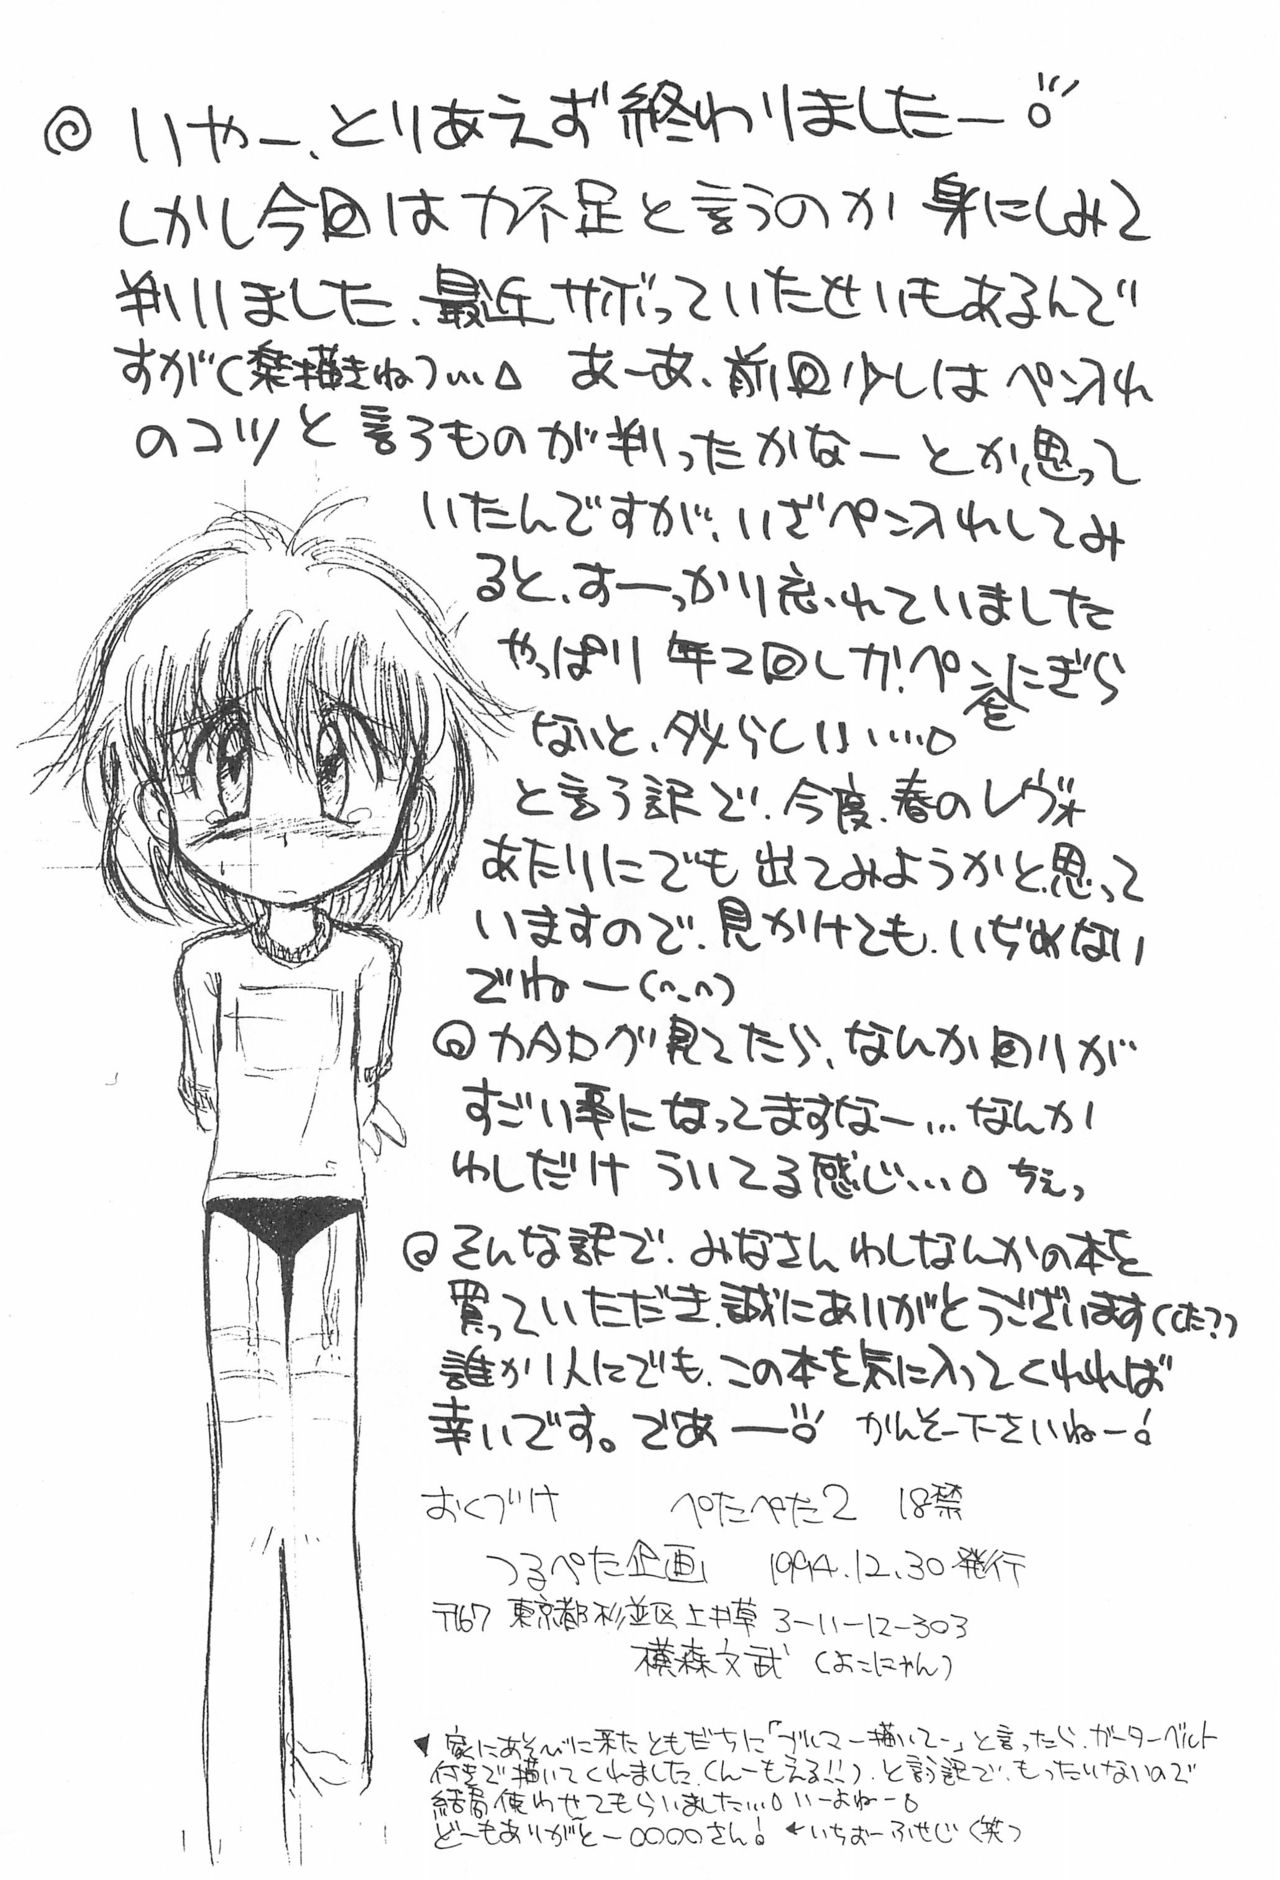 ◎ いやー、とりあえず終わりましたー
しかし今回は力不足と言うのか 身にしみて
判りました、最近サボっていたせいもあるんで
すが(楽描きね)… あーあ、前回少しはペン入れ
のコツと言うものが判ったかなーとか思って
いたんですが、いざペン入れしてみ
ると、すーっかり忘れていました
やっぱり年2回しか、ペンをにぎら
ないと、ダメらしい…。
と言う訳で、今度、春のレヴォ
あたりにでも出てみようかと思って
いますので、見かけても、いぢめない
でねー(^_^)
◎カタログ見てたら、なんか回りが
すごい事になってますなー…なんか
わしだけ ういてる感じ…。ちぇっ
◎そんな訳で、みなさんわしなんかの本を
買っていただき、誠にありがとうございます(した?)
誰か1人にでも、この本を気に入ってくれれば
幸いです。であー かんそー下さいねー!
おくづけ ぺたぺた2 18禁
つるぺた企画 1994.12.30発行
〒167 東京都杉並区上井草3-11-12-303
横森文武 (よこにゃん)
▼ 家にあそびに来たともだちに「ブルマー描いてー」と言ったら、ガーターベルト
付きで描いてくれました、(んーもえる!!)、と言う訳で、もったいないので
結局使わせてもらいました…。いーよねー。
どーもありがとー○○○○さん! ←いちおーふせじ(笑)